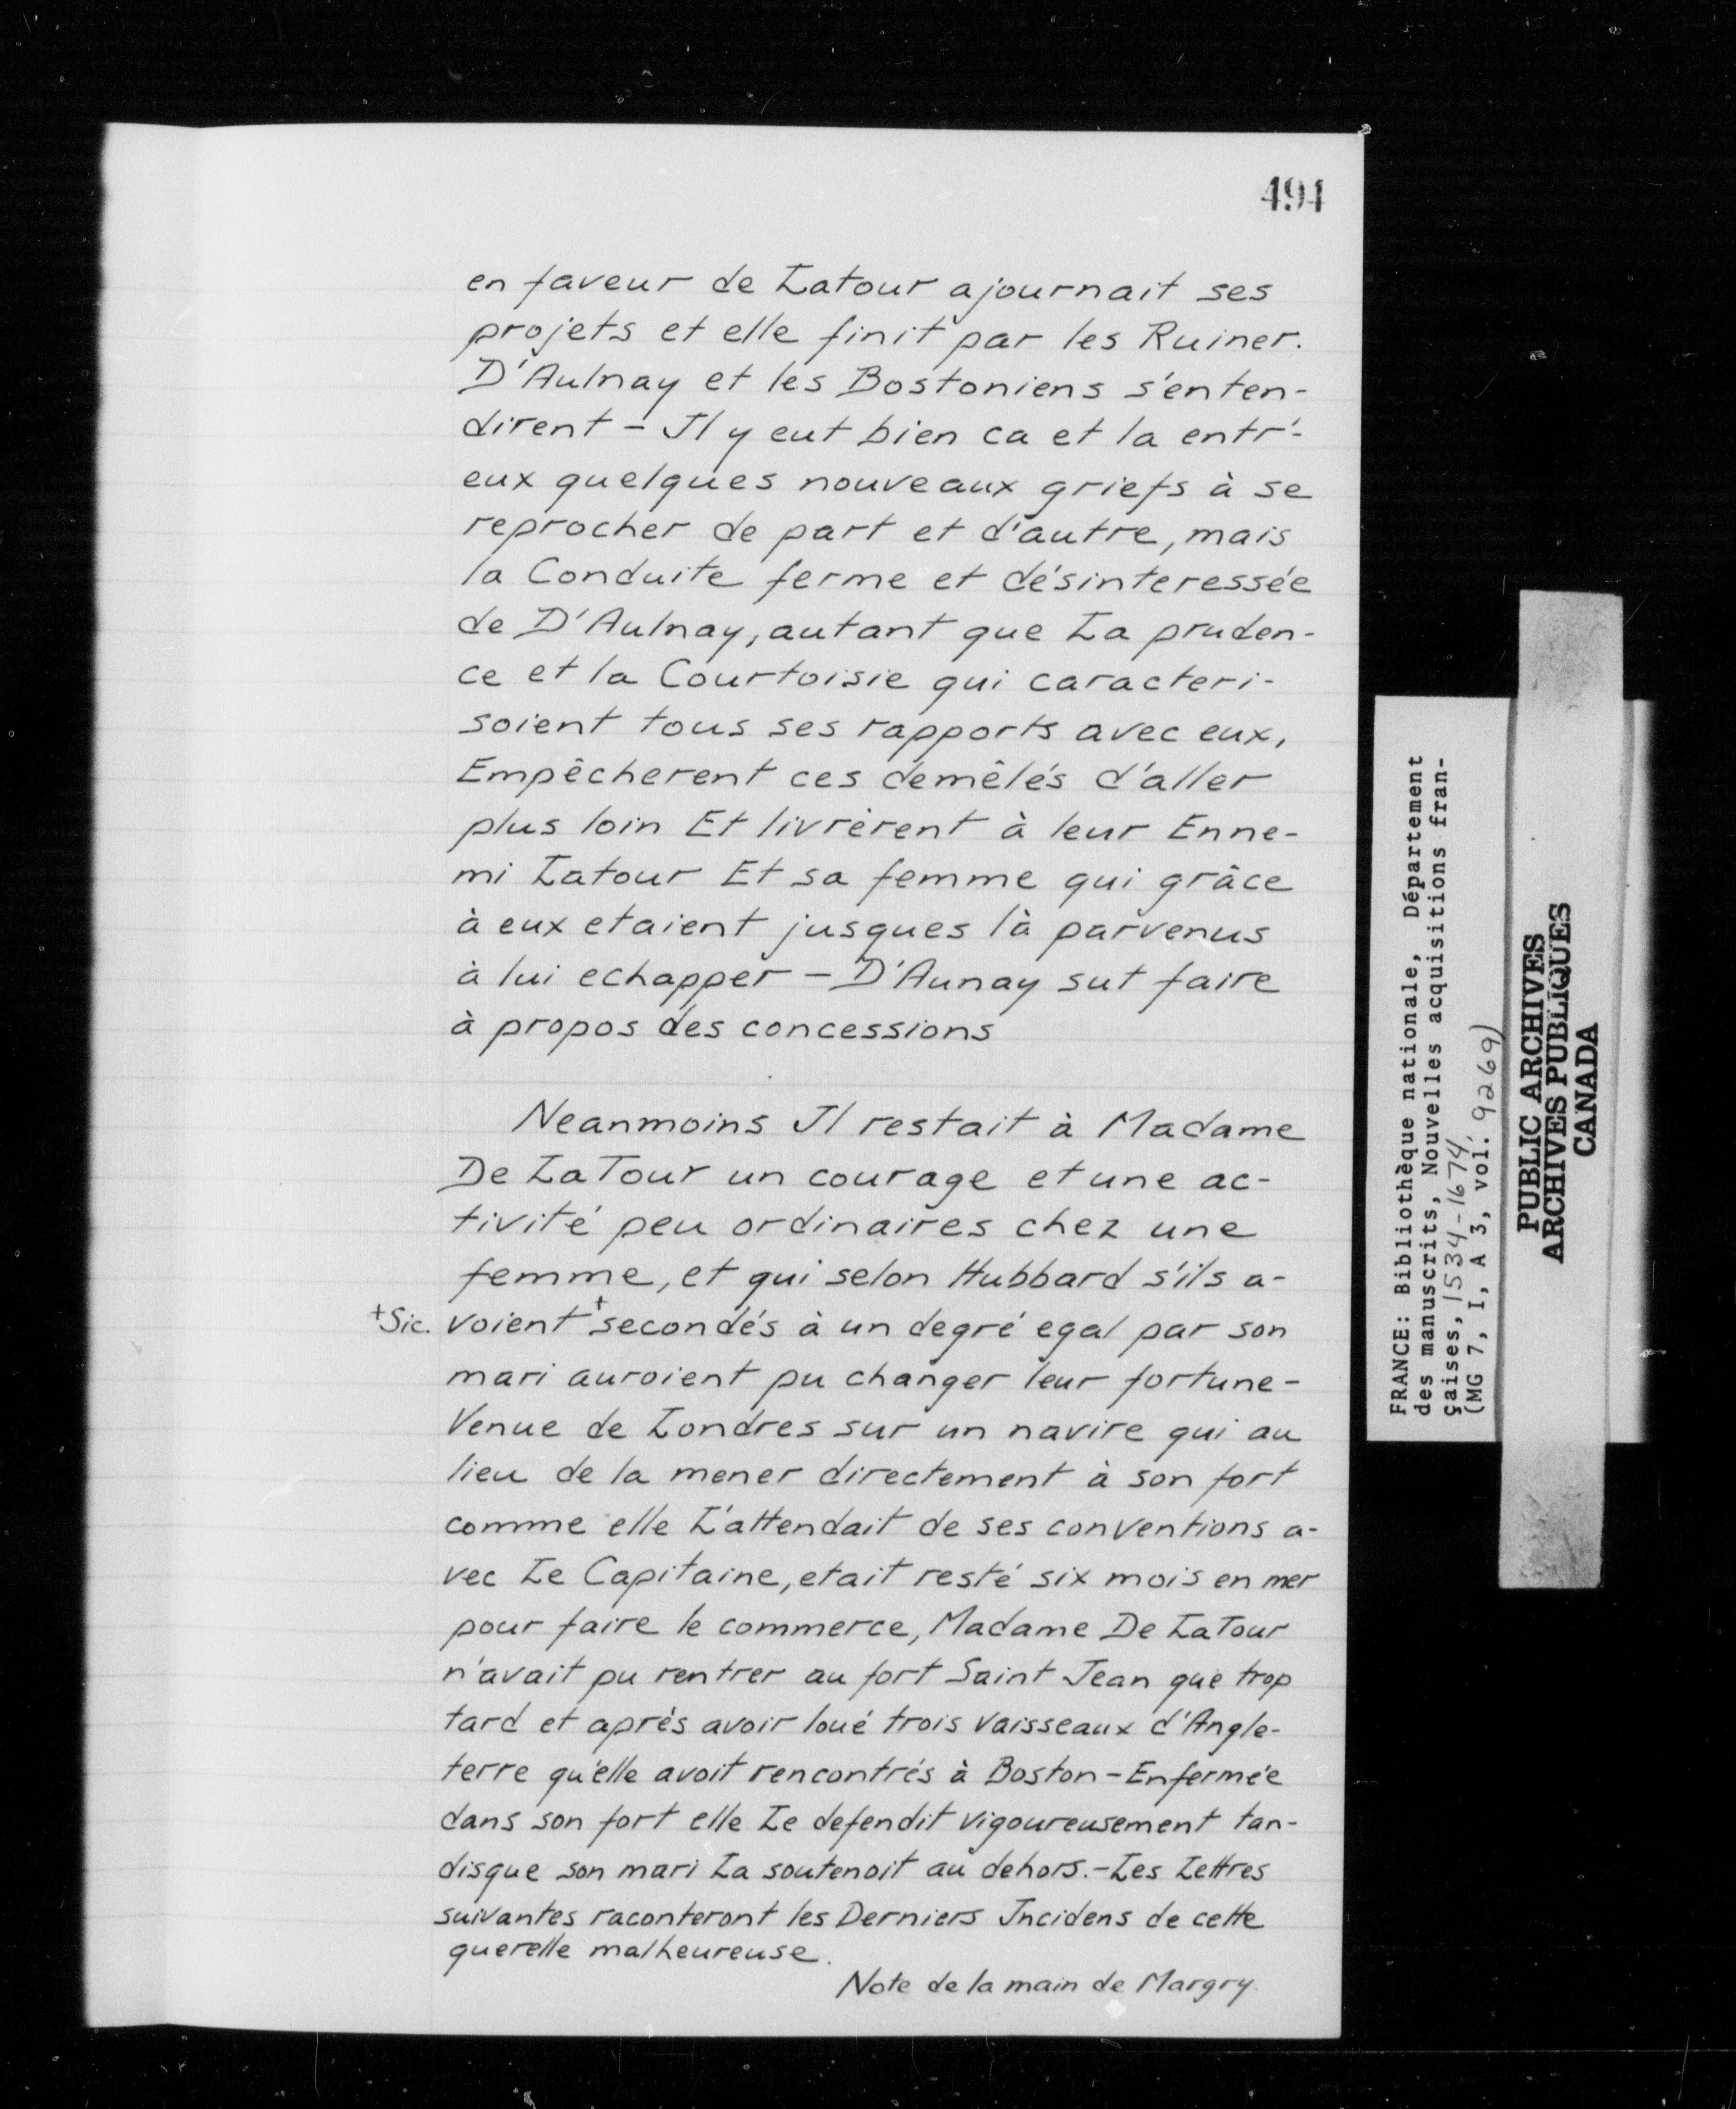 494
en faveur de Latour ajournait ses
projets et elle finit par les Ruiner.
D'Aulnay et les Bostoniens s'enten-
dirent - Il y eut bien ca et la entr'-
eux quelques nouveaux griefs à se
reprocher de part et d'autre, mais
la Conduite ferme et désinteressée
de D'Aulnay, autant que La pruden-
ce et la Courtoisie qui caracteri-
soient tous ses rapports avec eux,
Empêcherent ces demêlés d'aller
plus loin Et livrèrent à leur Enne-
mi Latour Et sa femme qui grâce
à eux etaient jusques là parvenus
à lui echapper - D'Aunay sut faire
à propos des concessions
Neanmoins Il restait à Madame
De LaTour un courage et une ac-
tivité peu ordinaires chez une
femme, et qui selon Hubbard s'ils a-
+Sic. voient + secondés à un degré egal par son
mari auroient pu changer leur fortune -
Venue de Londres sur un navire qui au
lieu de la mener directement à son fort
comme elle L'attendait de ses conventions a-
vec Le Capitaine, etait resté six mois en mer
pour faire le commerce, Madame De LaTour
n'avait pu rentrer au fort Saint Jean que trop
tard et après avoir loué trois vaisseaux d'Angle-
terre qu'elle avoit rencontrés à Boston - Enfermée
dans son fort elle Le defendit vigoureusement tan-
disque son mari La soutenoit au dehors. - Les Lettres
suivantes raconteront les Derniers Incidens de cette
querelle malheureuse.
Note de la main de Margry.
FRANCE: Bibliothèque nationale, Département
des manuscrits, Nouvelles acquisitions fran-
çaises, 1534-1674,
(MG 7, I, A 3, vol. 9269)
PUBLIC ARCHIVES
ARCHIVES PUBLIQUES
CANADA